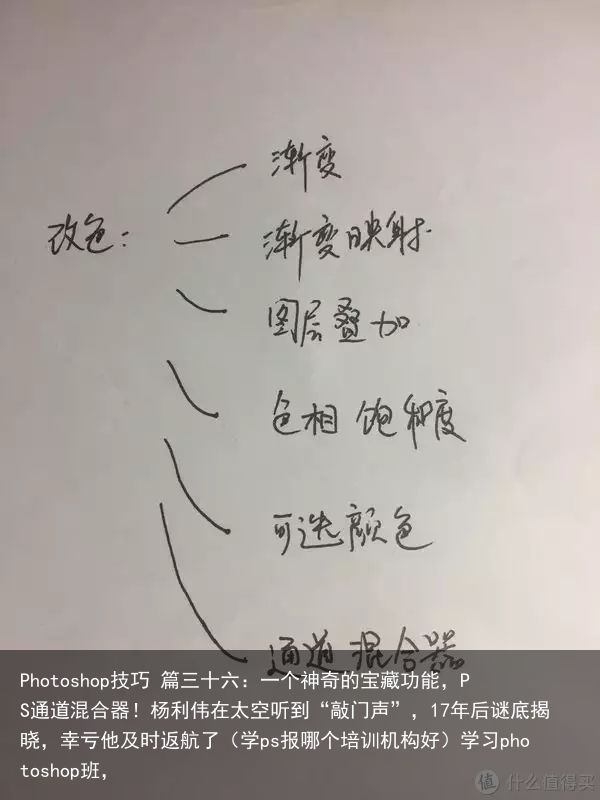 渐变
改色：
渐变映射
图层叠加
色相 饱和度
可选颜色
通道混合器
Photoshop技巧 篇三十六：一个神奇的宝藏功能，P
S通道混合器！杨利伟在太空听到“敲门声”，17年后谜底揭
晓，幸亏他及时返航了（学ps报哪个培训机构好）学习pho
toshop班，
值 什么值得买